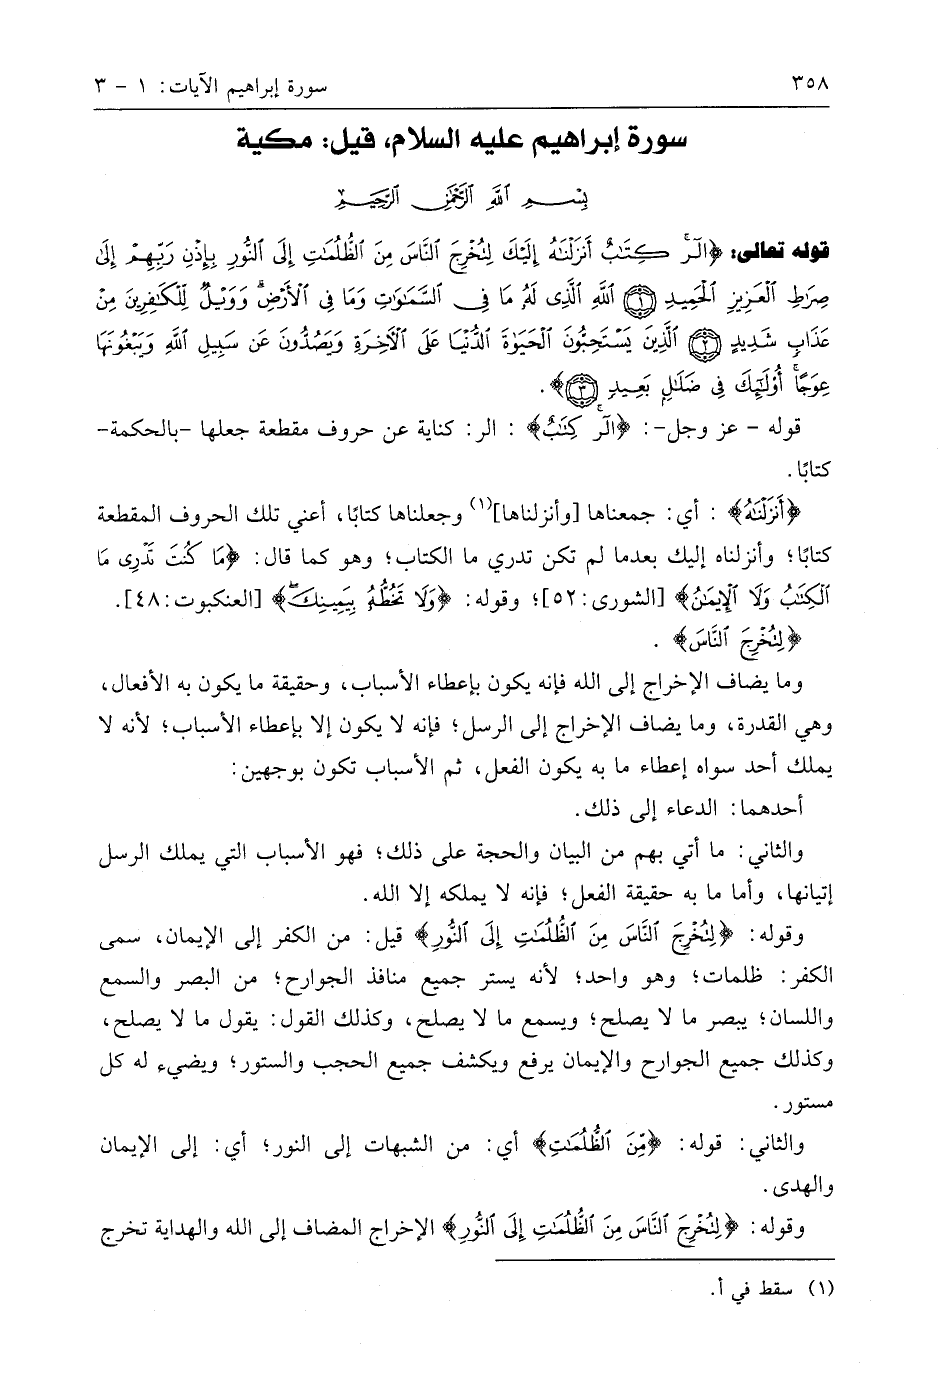 ٣٥٨ سورة إبراهيم الآيات: ١ - ٣
سورة إبراهيم عليه السلام، قيل: مكية
بِسْمِ اللَّهِ الرَّحْمَٰنِ الرَّحِيمِ
قوله تعالى: ﴿الٓر ۚ كِتَٰبٌ أَنزَلْنَٰهُ إِلَيْكَ لِتُخْرِجَ ٱلنَّاسَ مِنَ ٱلظُّلُمَٰتِ إِلَى ٱلنُّورِ بِإِذْنِ رَبِّهِمْ إِلَىٰ
صِرَٰطِ ٱلْعَزِيزِ ٱلْحَمِيدِ ﴿١﴾ ٱللَّهِ ٱلَّذِى لَهُۥ مَا فِى ٱلسَّمَٰوَٰتِ وَمَا فِى ٱلْأَرْضِ ۗ وَوَيْلٌ لِّلْكَٰفِرِينَ مِنْ
عَذَابٍ شَدِيدٍ ﴿٢﴾ ٱلَّذِينَ يَسْتَحِبُّونَ ٱلْحَيَوٰةَ ٱلدُّنْيَا عَلَى ٱلْآخِرَةِ وَيَصُدُّونَ عَن سَبِيلِ ٱللَّهِ وَيَبْغُونَهَا
عِوَجًا ۚ أُو۟لَٰٓئِكَ فِى ضَلَٰلٍۭ بَعِيدٍ ﴿٣﴾﴾.
قوله - عز وجل-: ﴿الٓر ۚ كِتَٰبٌ﴾ : الر: كناية عن حروف مقطعة جعلها -بالحكمة-
كتابًا.
﴿أَنزَلْنَٰهُ﴾ : أي: جمعناها [وأنزلناها](١) وجعلناها كتابًا، أعني تلك الحروف المقطعة
كتابًا؛ وأنزلناه إليك بعدما لم تكن تدري ما الكتاب؛ وهو كما قال: ﴿مَا كُنتَ تَدْرِى مَا
ٱلْكِتَٰبُ وَلَا ٱلْإِيمَٰنُ﴾ [الشورى:٥٢]؛ وقوله: ﴿وَلَا تَخُطُّهُۥ بِيَمِينِكَ ۖ﴾ [العنكبوت:٤٨].
﴿لِتُخْرِجَ ٱلنَّاسَ﴾ .
وما يضاف الإخراج إلى الله فإنه يكون بإعطاء الأسباب، وحقيقة ما يكون به الأفعال،
وهي القدرة، وما يضاف الإخراج إلى الرسل؛ فإنه لا يكون إلا بإعطاء الأسباب؛ لأنه لا
يملك أحد سواه إعطاء ما به يكون الفعل، ثم الأسباب تكون بوجهين:
أحدهما: الدعاء إلى ذلك.
والثاني: ما أتي بهم من البيان والحجة على ذلك؛ فهو الأسباب التي يملك الرسل
إتيانها، وأما ما به حقيقة الفعل؛ فإنه لا يملكه إلا الله.
وقوله: ﴿لِتُخْرِجَ ٱلنَّاسَ مِنَ ٱلظُّلُمَٰتِ إِلَى ٱلنُّورِ﴾ قيل: من الكفر إلى الإيمان، سمى
الكفر: ظلمات؛ وهو واحد؛ لأنه يستر جميع منافذ الجوارح؛ من البصر والسمع
واللسان؛ يبصر ما لا يصلح؛ ويسمع ما لا يصلح، وكذلك القول: يقول ما لا يصلح،
وكذلك جميع الجوارح والإيمان يرفع ويكشف جميع الحجب والستور؛ ويضيء له كل
مستور.
والثاني: قوله: ﴿مِّنَ ٱلظُّلُمَٰتِ﴾ أي: من الشبهات إلى النور؛ أي: إلى الإيمان
والهدى.
وقوله: ﴿لِتُخْرِجَ ٱلنَّاسَ مِنَ ٱلظُّلُمَٰتِ إِلَى ٱلنُّورِ﴾ الإخراج المضاف إلى الله والهداية تخرج
(١) سقط في أ.